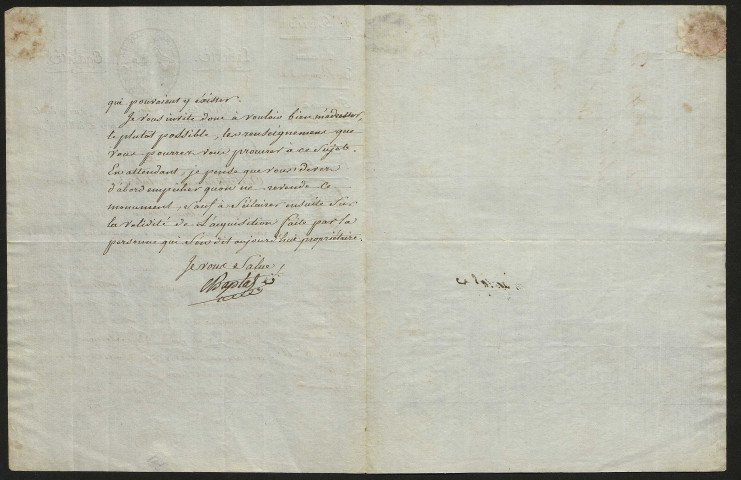 qui pouvoient y éxister.
Je vous invite donc à vouloir bien m'adresser,
le plutot possible, les renseignemens que
vous pourrez vous procurer à ce sujet.
En attendant, je pense que vous devez
d'abord empêcher qu'on ne revende ce
monument, sauf à s'éclairer ensuite sur
la validité de l'acquisition faite par la
personne qui s'en dit aujourd'hui propriétaire.
Je vous salue,